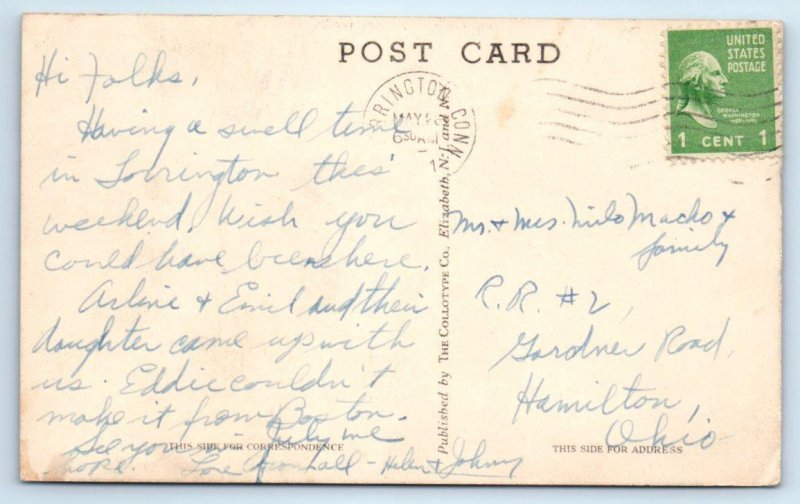 POST CARD
UNITED
STATES
POSTAGE
GEORGE
WASHINGTON
1 CENT 1
RRINGTON CONN
MAY 28
6 30 AM
1
Hi Folks,
Having a swell time
in Torrington this
weekend. Wish you
could have been here.
Arline & Emil and their
daughter came up with
us. Eddie couldn't
make it from Boston.
See you in July we
hope. Love from all - Helen & Johnny
THIS SIDE FOR CORRESPONDENCE
Published by THE COLLOTYPE CO., Elizabeth, N. J. and N.
Mr. & Mrs. Milo Macko &
family
R.R. #2,
Gardner Road,
Hamilton,
Ohio
THIS SIDE FOR ADDRESS